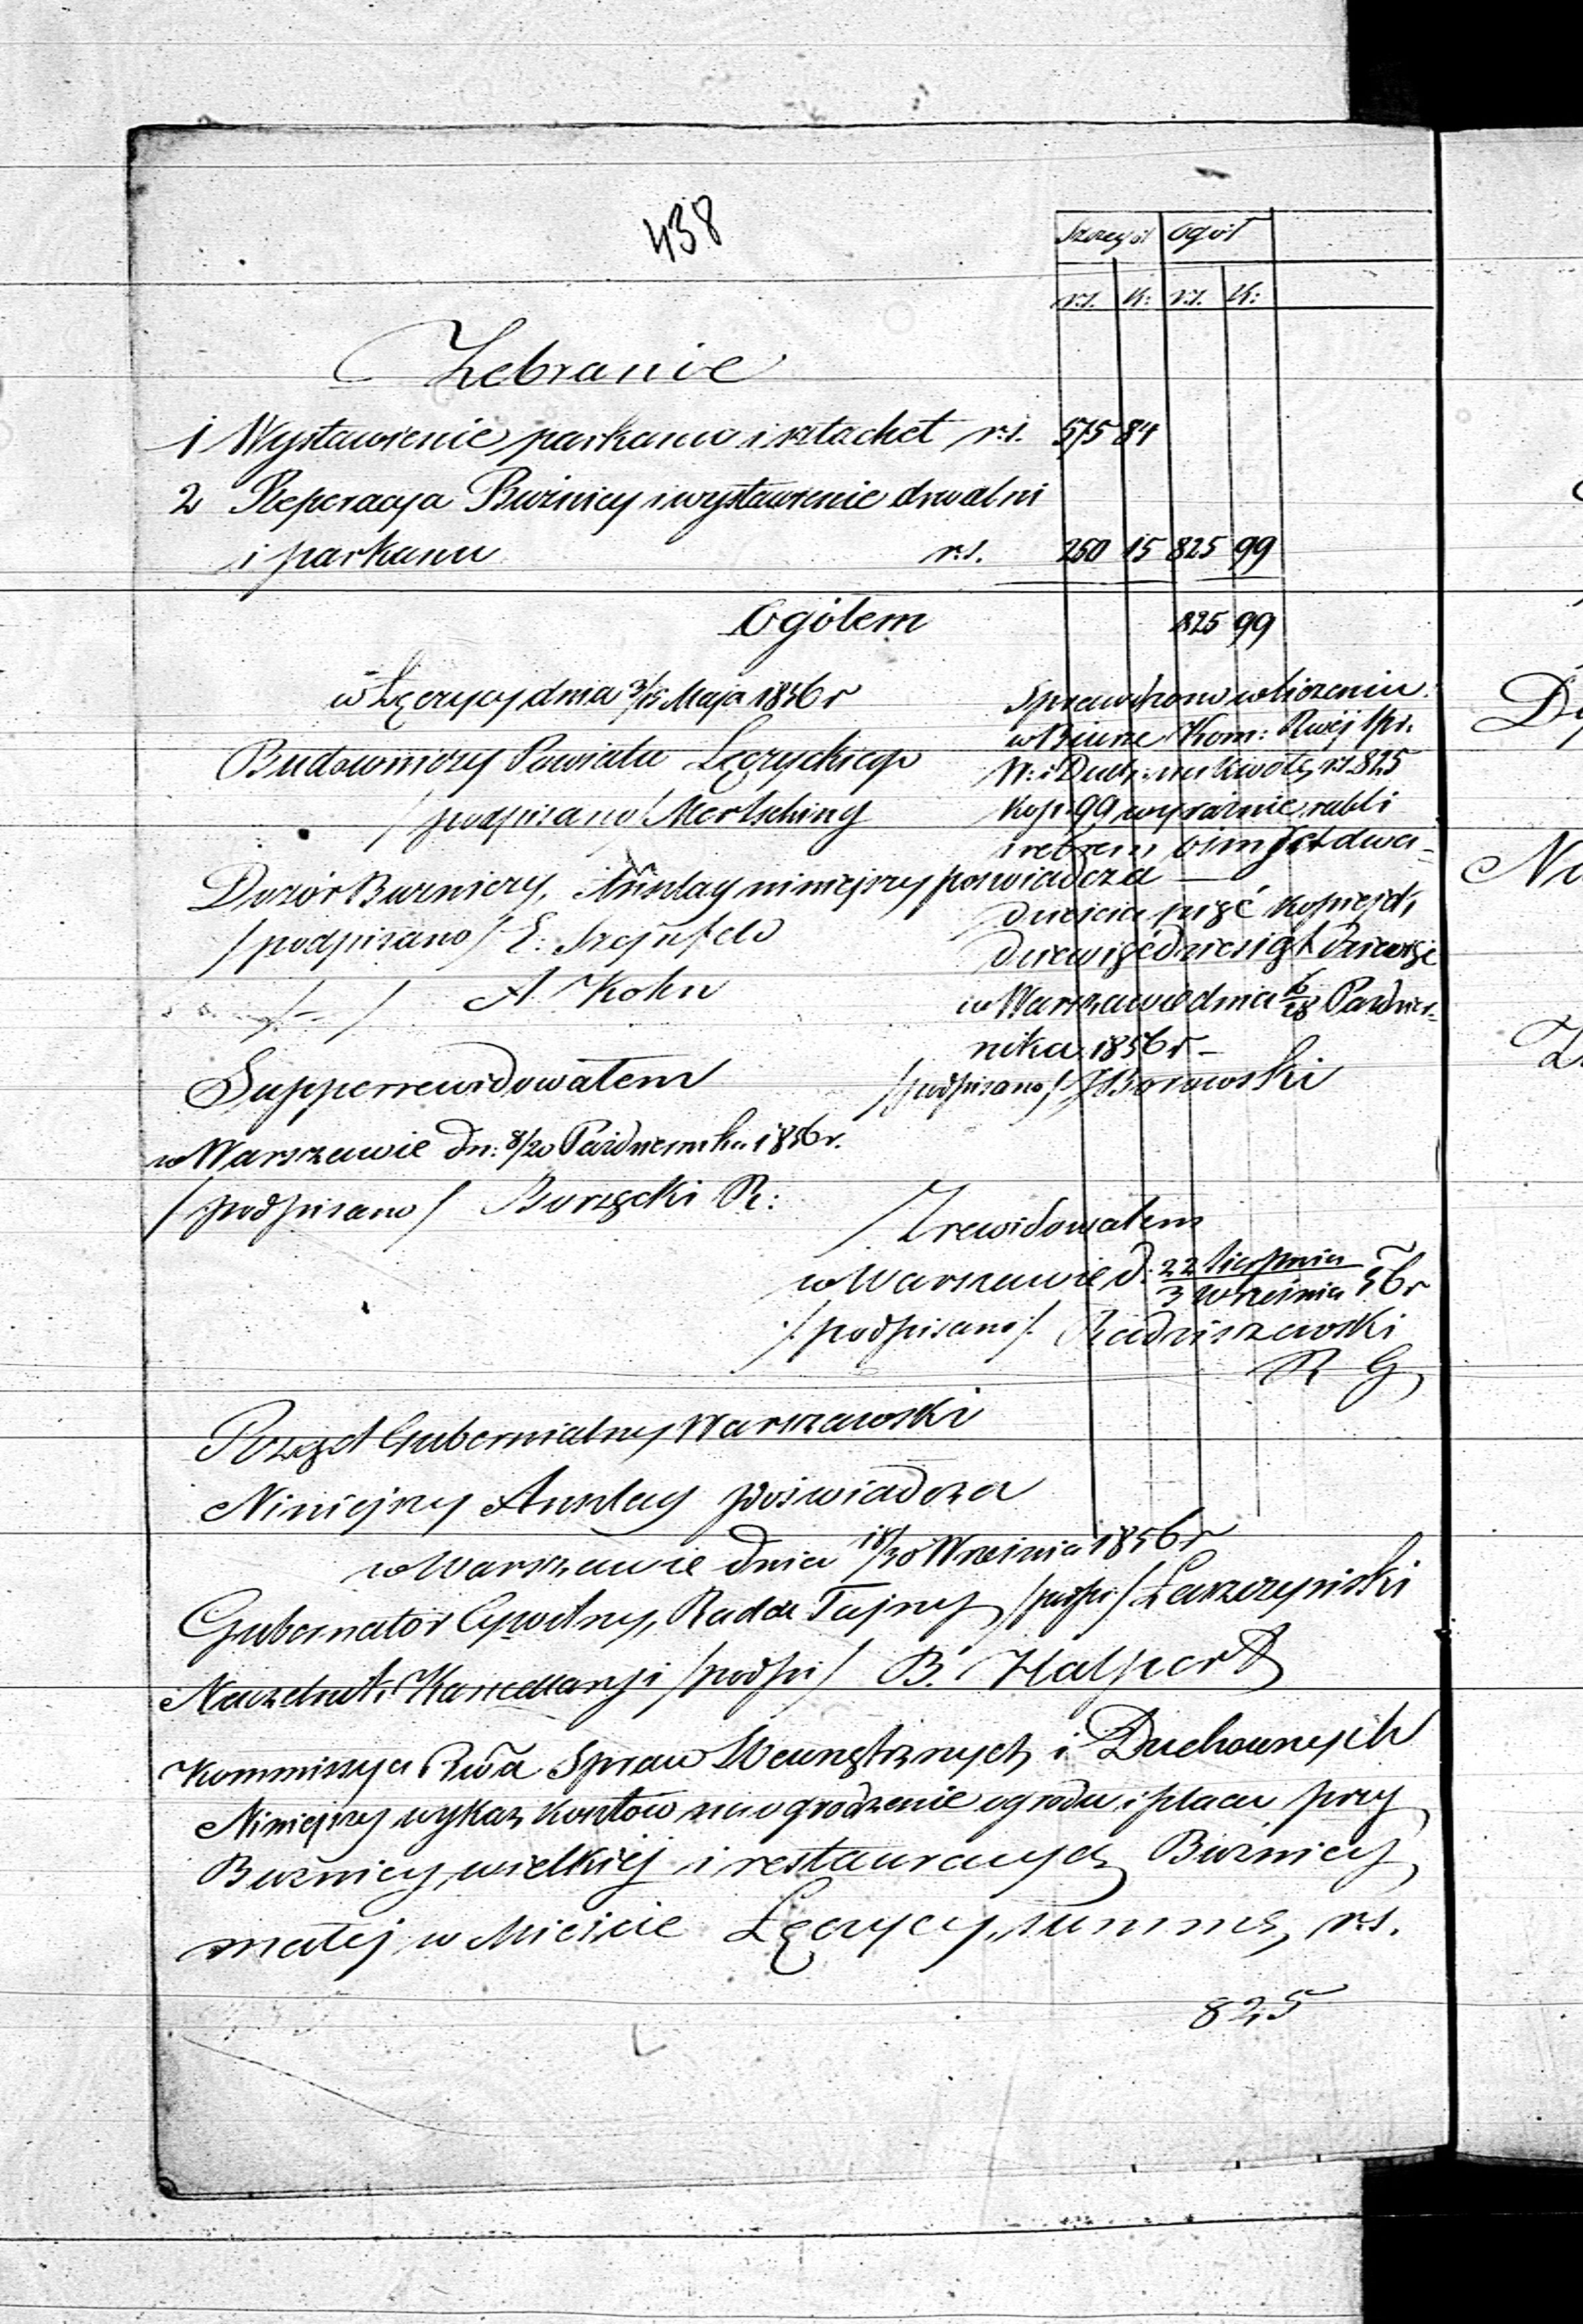 438
Szczegół Ogół
rs. k: rs. k:
Zebranie
1 Wystawienie parkanu i sztachet rs. 575 84
2 Reperacya Buźnicy i wystawienie drwalni
i parkanu rs. 250 15 825 99
Ogółem 825 99
w Łęczycy dnia 3/15 Maja 1856 r
Budowniczy Powiatu Łęczyckiego
/podpisano/ Mertsching
Dozór Buzniczy, Anszlag niniejszy poswiadcza
/podpisano/ E: Szejnfeld
A. Kohn
Sprawdzono w liczeniu
w Biurze Kom: Rwéj Spr.
W: i Duch: na kwotę rs 825
kop. 99 wyraźnie rubli
srebrem ośmset dwa-
dzieścia pięć kopiejek
dziewięćdziesiąt dziewięć
w Warszawie dnia 6/18 Paździer-
nika 1856 r –
/podpisano/ Borowski
Supperrewidowałem
w Warszawie dn: 8/20 Październiku 1856 r.
/podpisano/ Burzęcki R:
Zrewidowałem
w Warszawie d. 22 Sierpnia / 3 Września 56 r
/podpisano/. Radziszewski
R G
Rząd Gubernialny Warszawski
Niniejszy Anszlag poświadcza
w Warszawie dnia 18/30 Września 1856 r
Gubernator Cywilny, Radca Tajny /podpi/ Łaszczyński
Naczelnik Kancellaryi /podpi/ B. Halpert
Kommissya Rwa Spraw Wewnętrznych i Duchownych
Niniejszy wykaz kosztów na ogrodzenie ogrodu i placu przy
Buznicy wielkiéj i restauracyą Buźnicy
małéj w Mieście Łęczycy, summę rs.
825